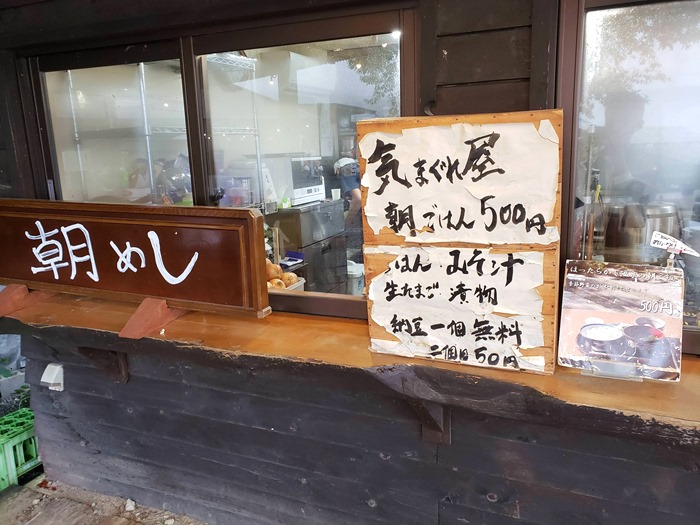 朝めし
気まぐれ屋
朝ごはん500円
ごはん・みそ汁
生たまご・漬物
納豆一個無料
二個目50円
500円